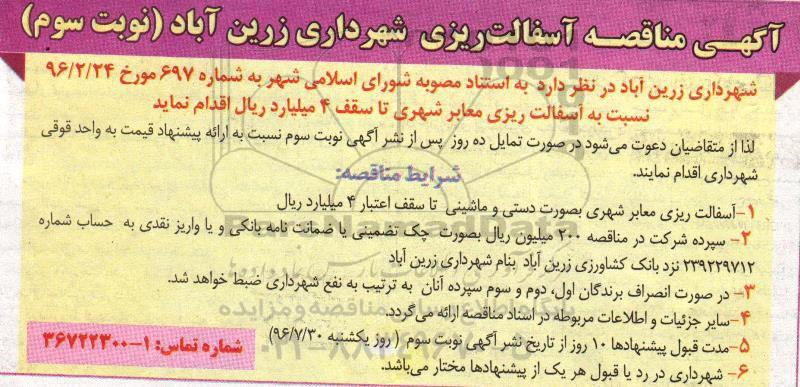 آگهـی مناقصـه آسفالت‌ریزی شهرداری زرین آباد (نوبت سوم)
شهرداری زرین آباد در نظر دارد به استناد مصوبه شورای اسلامی شهر به شماره ۶۹۷ مورخ ۹۶/۲/۲۴
نسبت به آسفالت ریزی معابر شهری تا سقف ۴ میلیارد ریال اقدام نماید
لذا از متقاضیان دعوت می‌شود در صورت تمایل ده روز پس از نشر آگهی نوبت سوم نسبت به ارائه پیشنهاد قیمت به واحد قوقی
شهرداری اقدام نمایند.
شرایط مناقصه:
۱-آسفالت ریزی معابر شهری بصورت دستی و ماشینی تا سقف اعتبار ۴ میلیارد ریال
۲- سپرده شرکت در مناقصه ۲۰۰ میلیون ریال بصورت چک تضمینی یا ضمانت نامه بانکی و یا واریز نقدی به حساب شماره
۲۳۹۲۲۹۷۱۲ نزد بانک کشاورزی زرین آباد بنام شهرداری زرین آباد
۳- در صورت انصراف برندگان اول، دوم و سوم سپرده آنان به ترتیب به نفع شهرداری ضبط خواهد شد.
۴-سایر جزئیات و اطلاعات مربوطه در اسناد مناقصه ارائه می‌گردد.
۵-مدت قبول پیشنهادها ۱۰ روز از تاریخ نشر آگهی نوبت سوم ( روز یکشنبه ۹۶/۷/۳۰)
۶- شهرداری در رد یا قبول هر یک از پیشنهادها مختار می‌باشد.
شماره تماس: ۱-۳۶۷۲۲۳۰۰